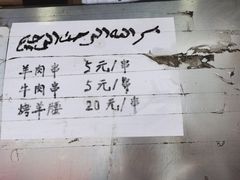 羊肉串 5元/串
牛肉串 5元/串
烤羊腰 20元/串